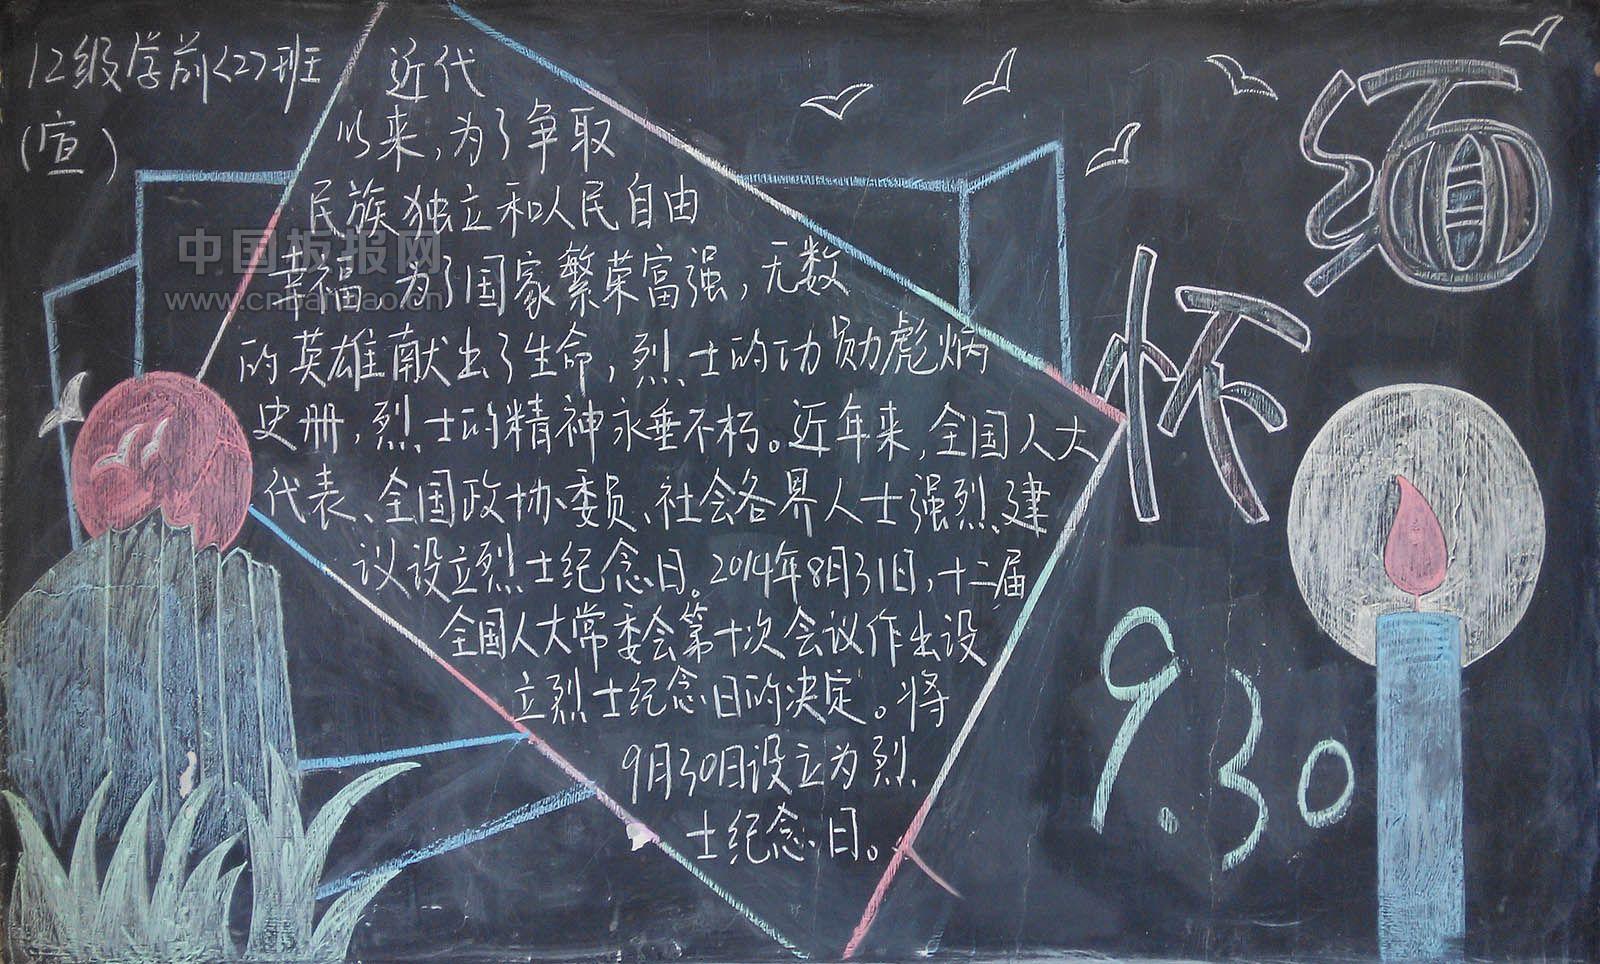 12级学前<2>班
(宣)
近代
以来,为了争取
民族独立和人民自由
幸福,为了国家繁荣富强,无数
的英雄献出了生命,烈士的功勋彪炳
史册,烈士的精神永垂不朽。近年来,全国人大
代表、全国政协委员、社会各界人士强烈建
议设立烈士纪念日。2014年8月31日,十二届
全国人大常委会第十次会议作出设
立烈士纪念日的决定。将
9月30日设立为烈
士纪念日。
缅
怀
9.30
中国板报网
www.cnbanbao.cn